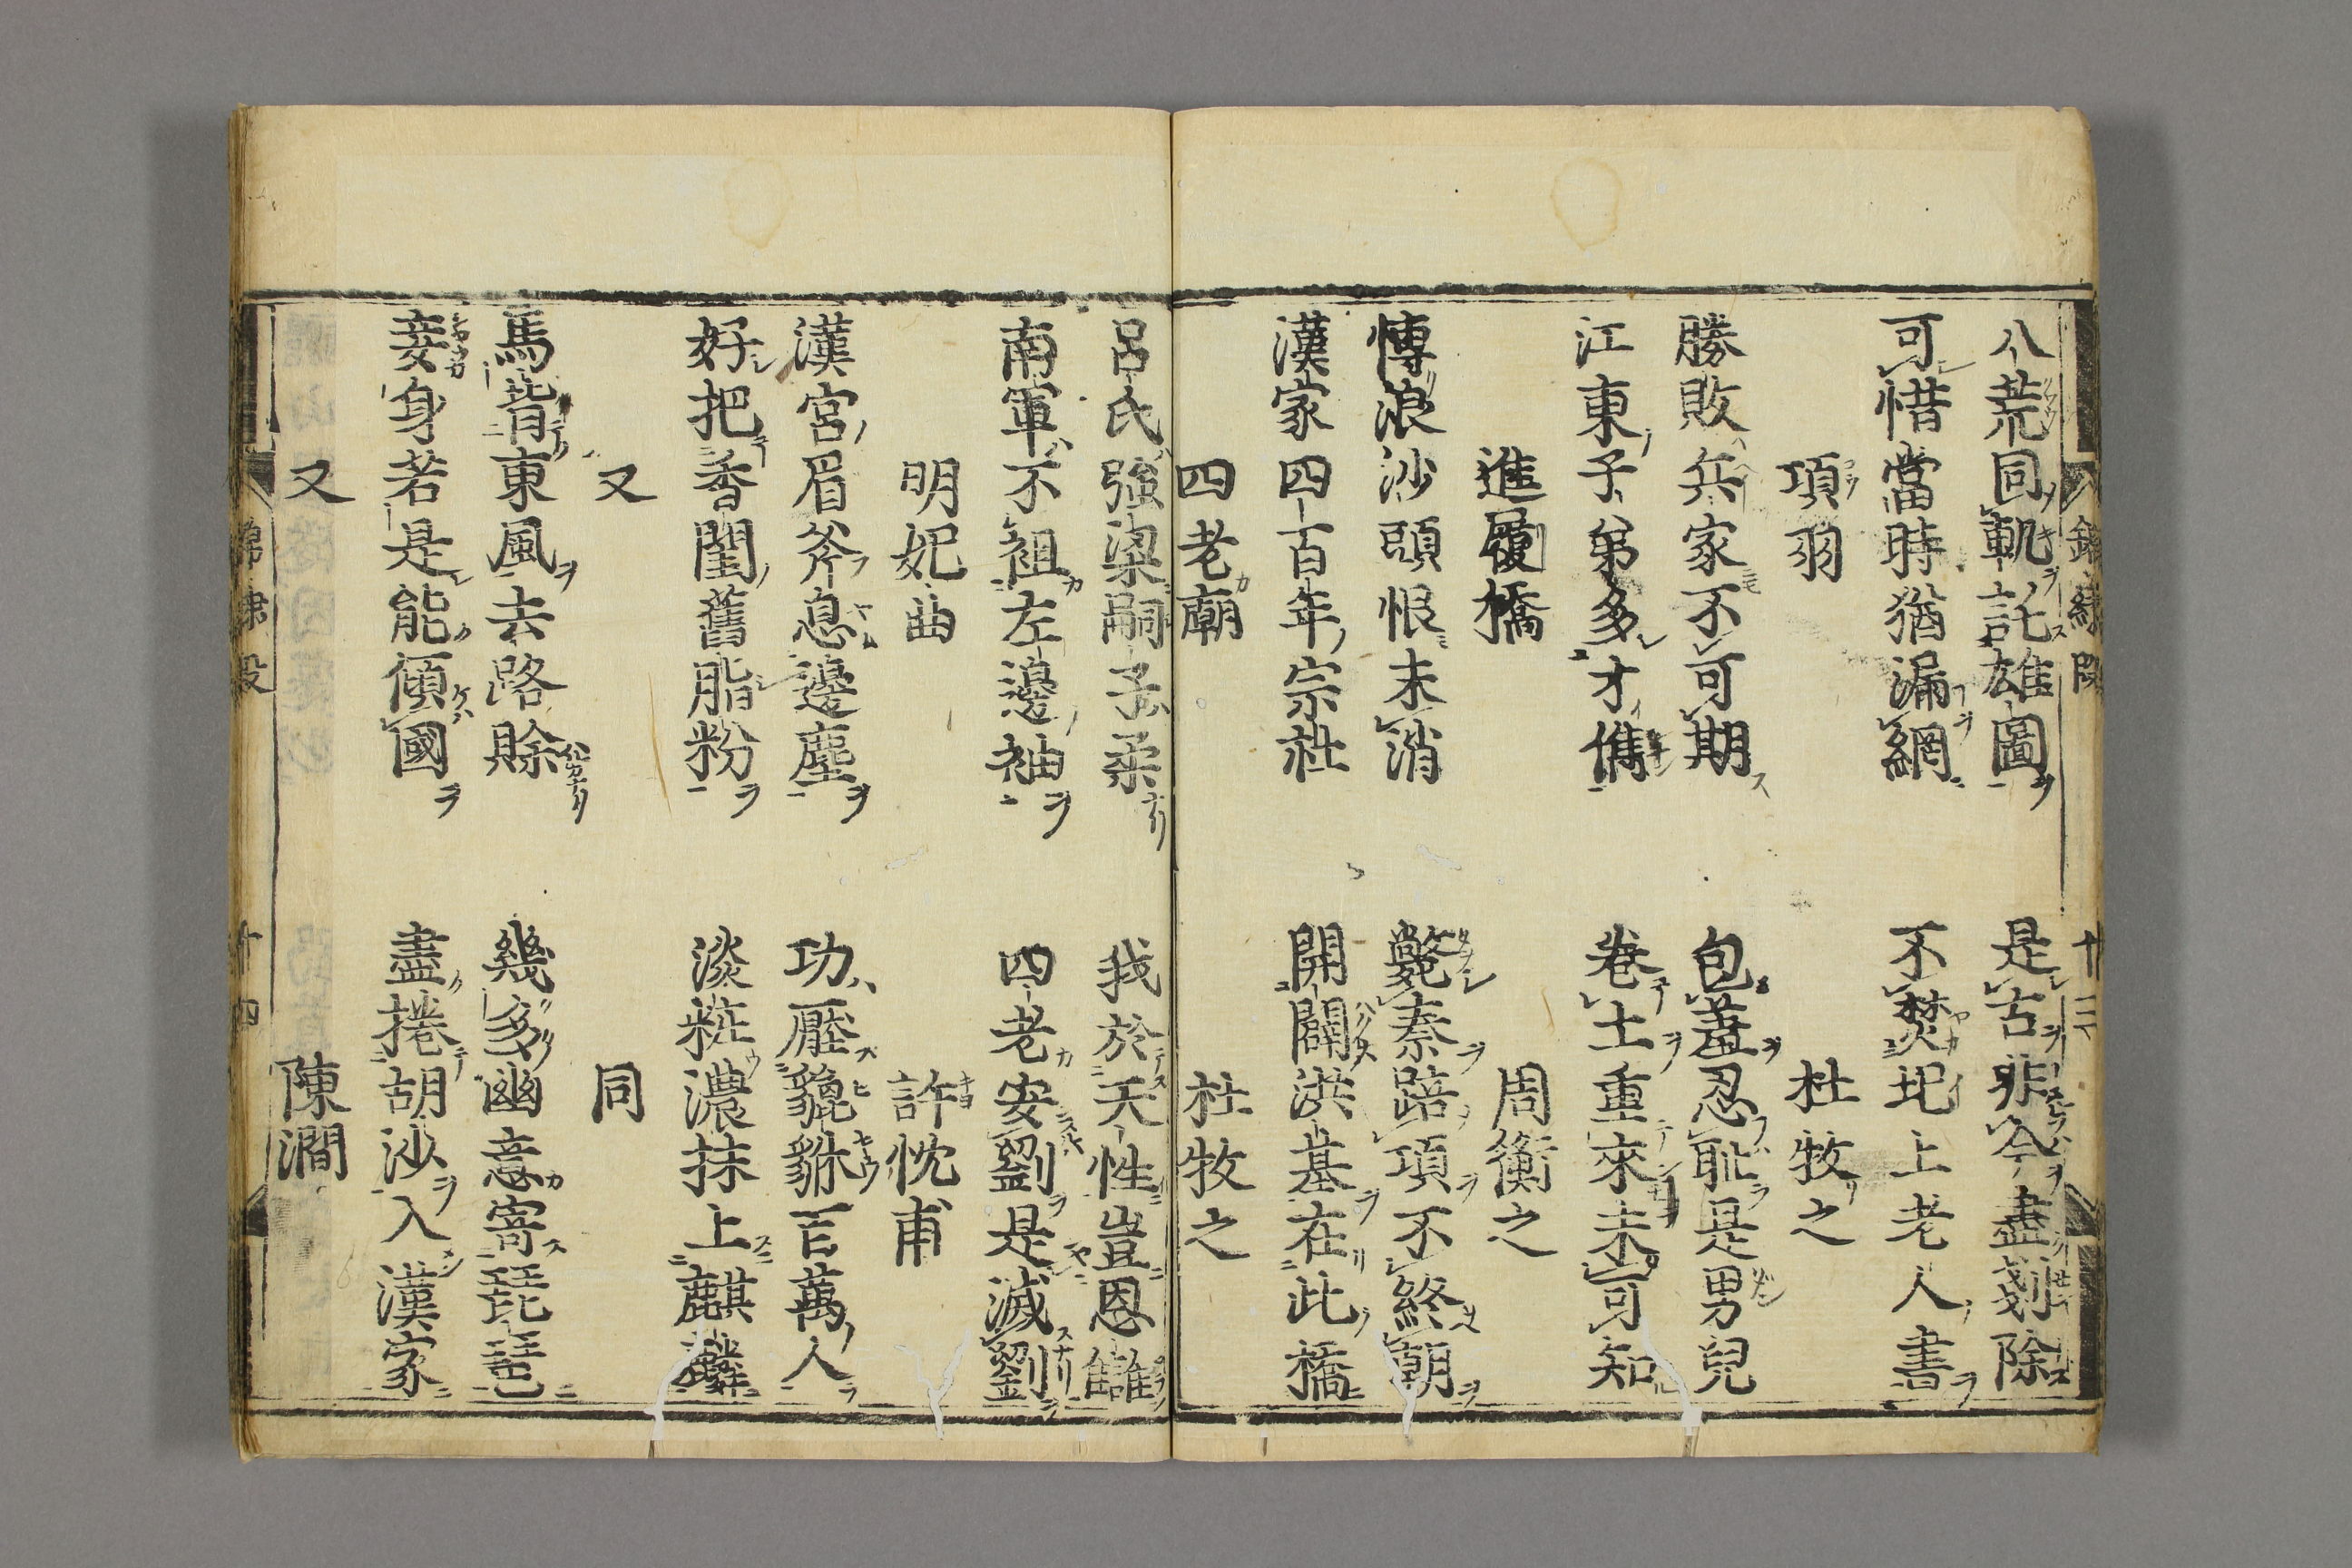 八荒同軌託雄圖 是古非今盡剗除
可惜當時猶漏網 不焚圯上老人書
項羽 杜牧之
勝敗兵家不可期 包羞忍耻是男兒
江東子弟多才儁 卷土重來未可知
進履橋 周衡之
慱浪沙頭恨未消 斃秦踣項不終朝
漢家四百年宗社 開闢洪基在此橋
四老廟 杜牧之
呂氏強梁嗣子柔 我於天性豈恩讎
南軍不袒左邊袖 四老安劉是滅劉
明妃曲 許忱甫
漢宮眉斧息邊塵 功壓貔貅百萬人
好把香閨舊脂粉 淡粧濃抹上麒麟
又 同
馬首東風去路賒 幾多幽意寄琵琶
妾身若是能傾國 盡捲胡沙入漢家
又 陳澗
錦繡段 十三
錦繡段 十四